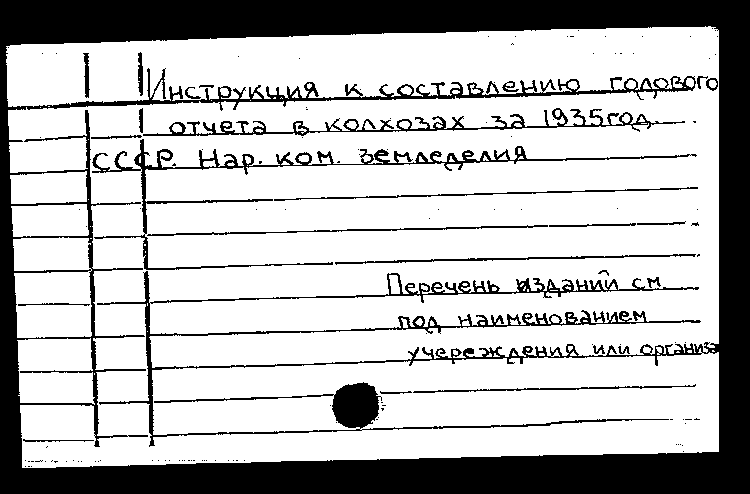 Инструкция к составлению годового
отчета в колхозах за 1935год.
СССР. Нар. ком. земледелия
Перечень изданий см.
под наименованием
учереждения или организа